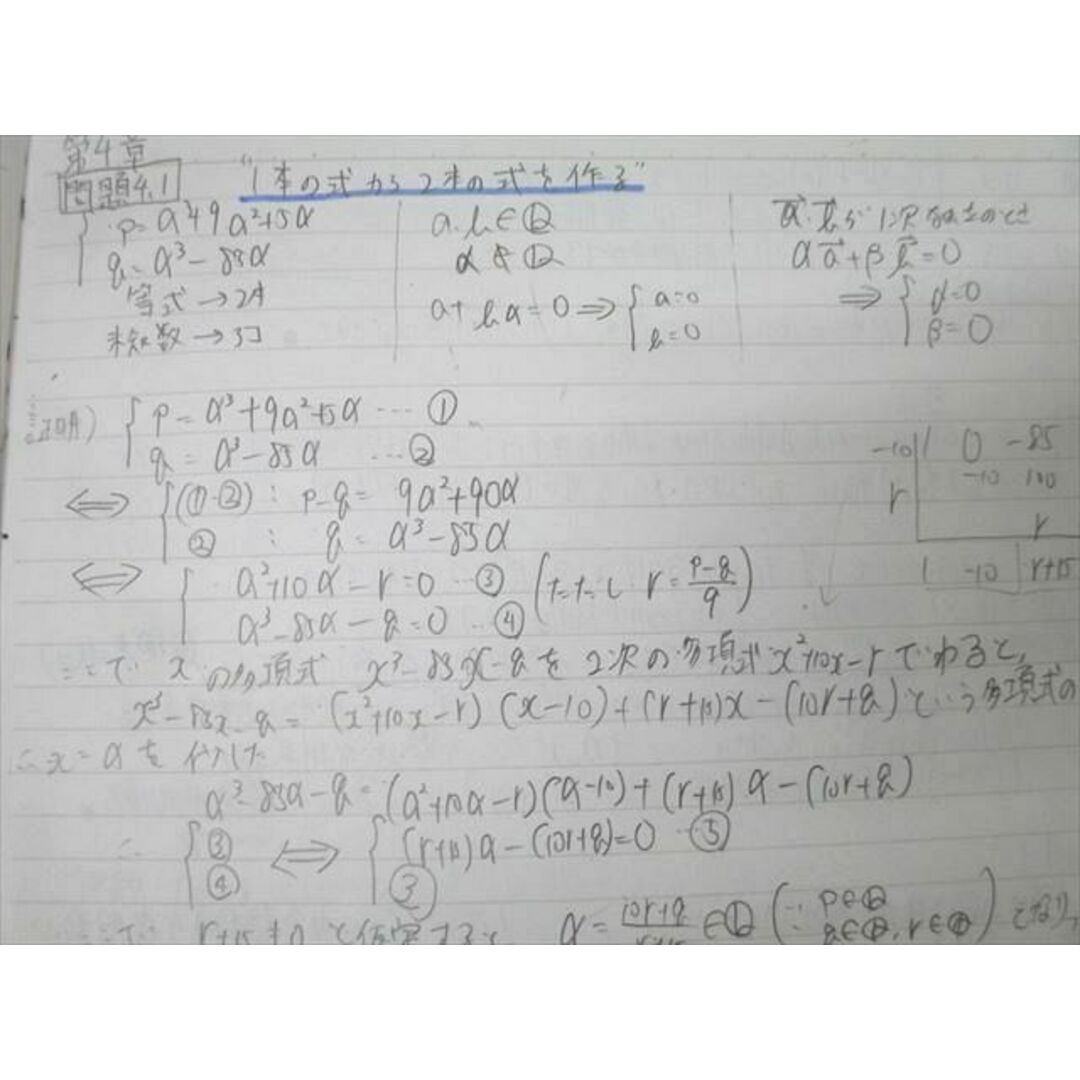 第4章
問題4.1 "1本の式から2本の式を作る"
p = α³+9α²+5α
q = α³-85α
等式→2本
未知数→3コ
a, b ∈ Q
α ∉ Q
a+bα=0 ⇒ { a=0
b=0
a⃗, b⃗が1次独立のとき
αa⃗+βb⃗=0
⇒ { α=0
β=0
証明) { p = α³+9α²+5α … ①
q = α³-85α … ②
⇔ { (①-②) : p-q = 9α²+90α
② : q = α³-85α
⇔ { α²+10α-r=0 … ③ (ただし r = (p-q)/9)
α³-85α-q=0 … ④
-10 | 1 0 -85
-10 100
r | r
1 -10 | r+15
ここで xの多項式 x³-85x-qを2次の多項式x²+10x-rでわると,
x³-85x-q = (x²+10x-r)(x-10)+(r+15)x-(10r+q)という多項式の
∴ x=αを
α³-85α-q=(α²+10α-r)(α-10)+(r+15)α-(10r+q)
∴ { ③ ⇔ { (r+15)α-(10r+q)=0 … ⑤
④ ③
ここで r+15≠0と仮定すると α = (10r+q)/(r+15) ∈ Q (∵ p∈Q
q∈Q, r∈Q) となり,